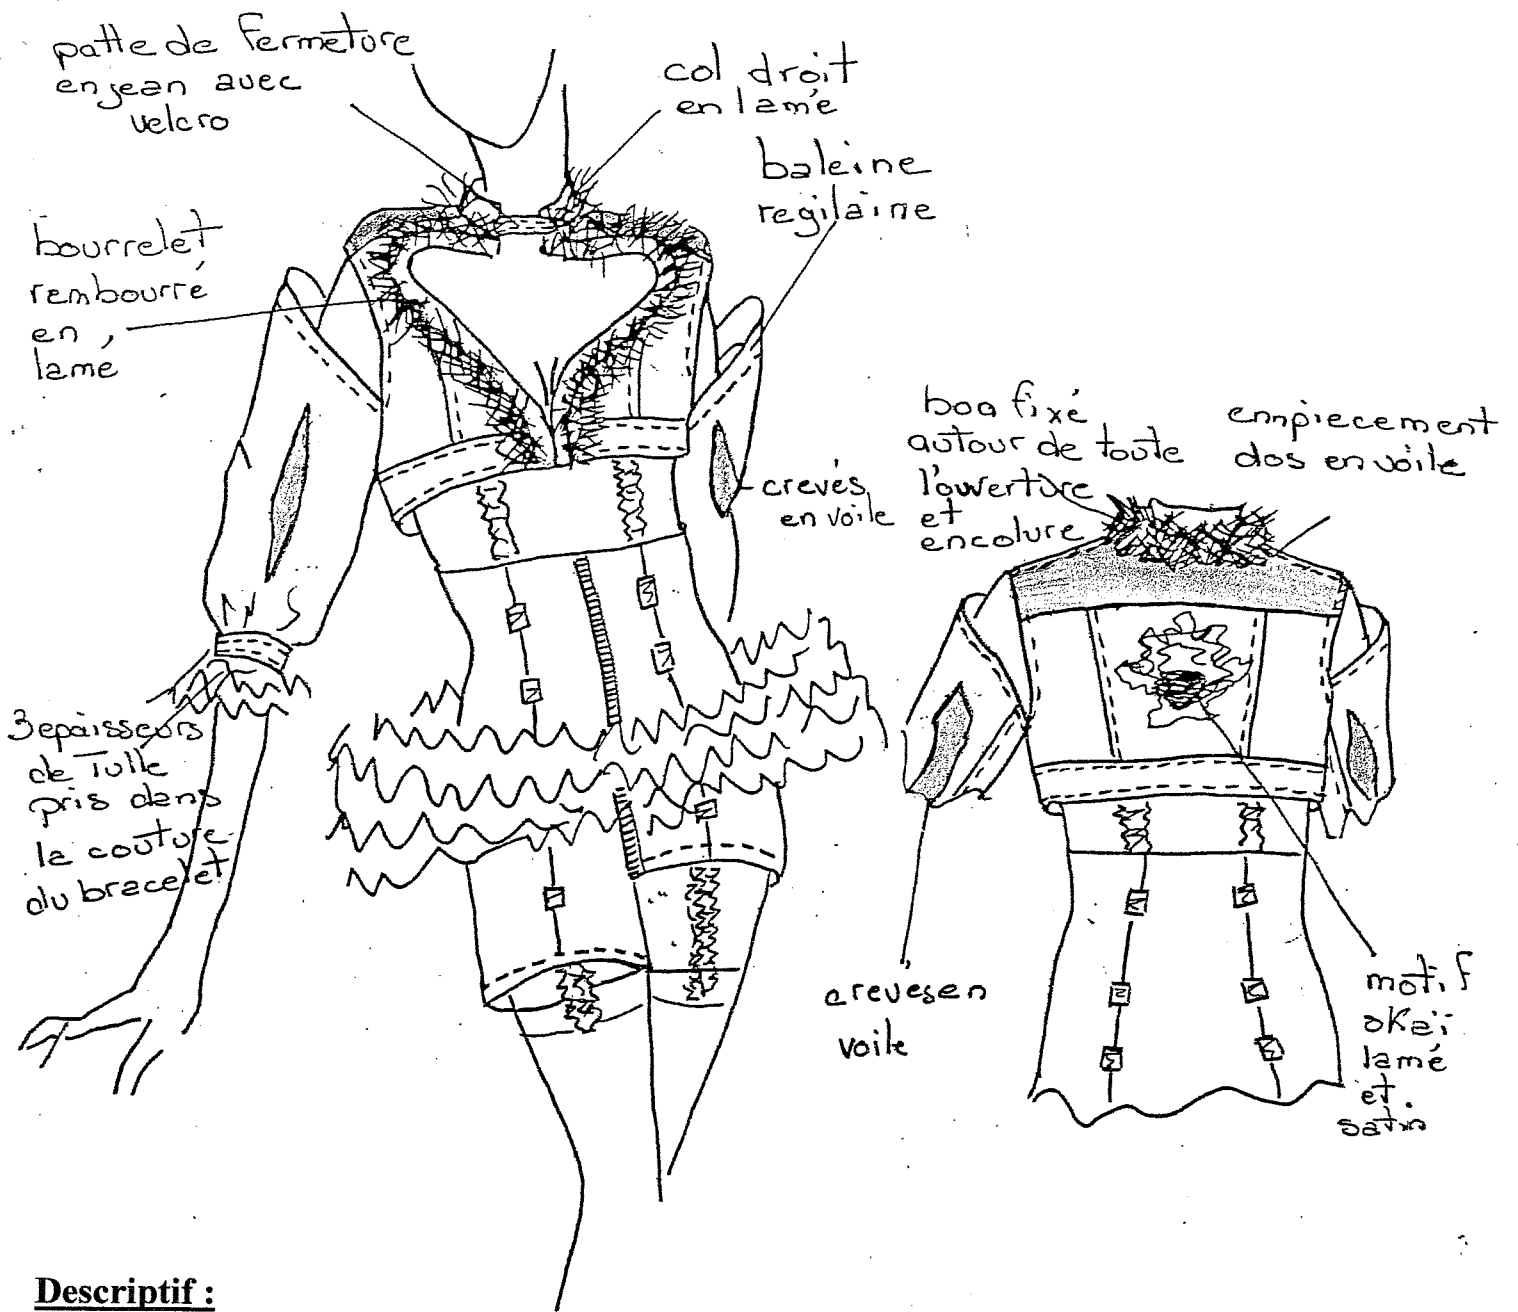 patte de fermeture
en jean avec
velcro
col droit
en lamé
baleine
regilaine
bourrelet
rembourré
en
lamé
boa fixé
autour de toute
l'ouverture
et
encolure
empiecement
dos en voile
crevés
en voile
3 epaisseurs
de Tulle
pris dans
la couture
du bracelet
crevés en
voile
motif
okaï
lamé
et
satin
Descriptif :